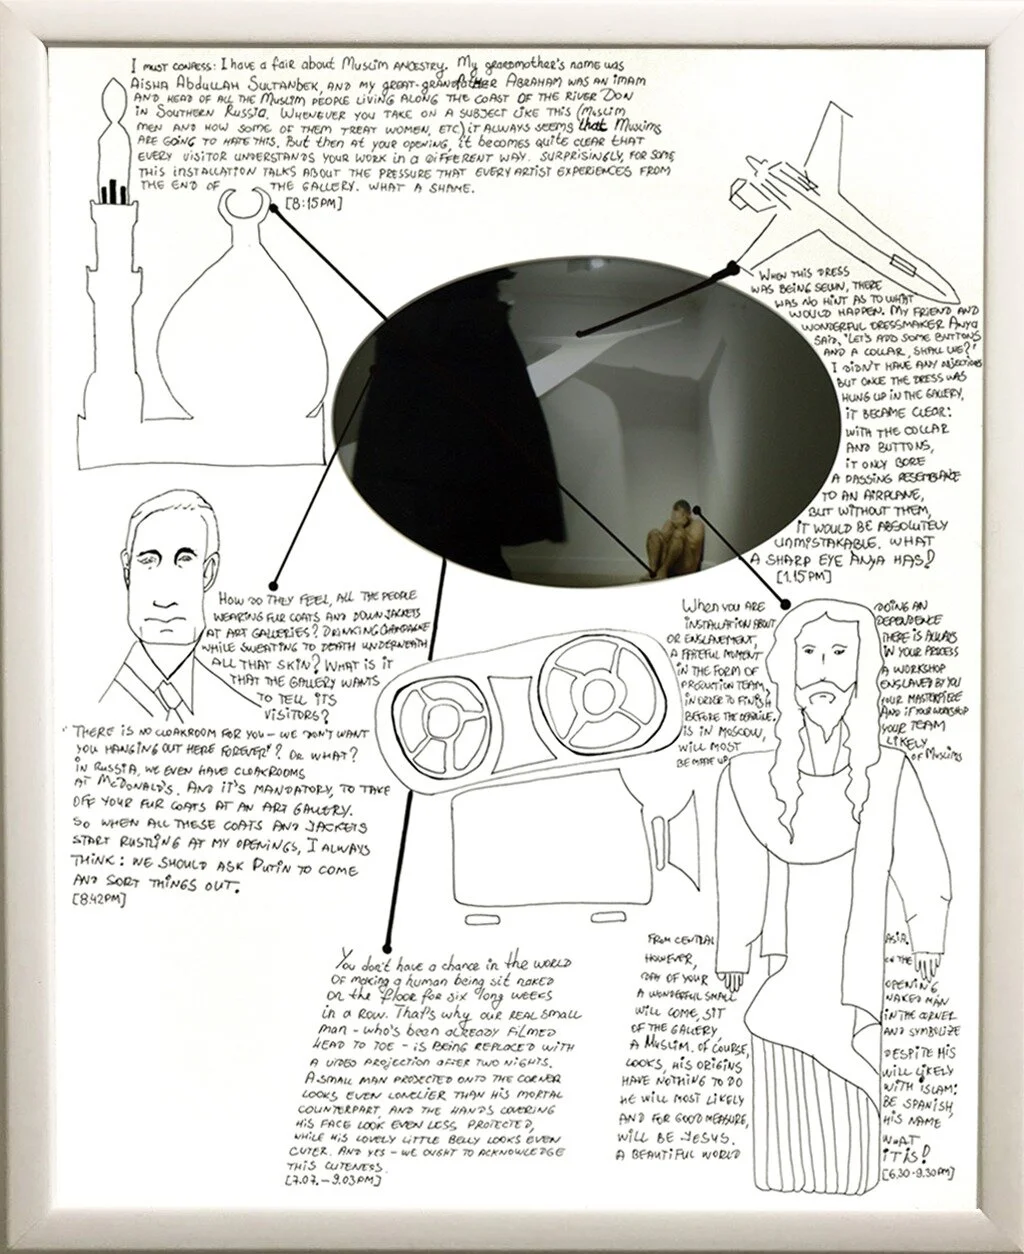 I MUST CONFESS: I HAVE A FAIR ABOUT MUSLIM ANCESTRY. MY GRANDMOTHER'S NAME WAS
AISHA ABDULLAH SULTANBEK, AND MY GREAT-GRANDFATHER ABRAHAM WAS AN IMAM
AND HEAD OF ALL THE MUSLIM PEOPLE LIVING ALONG THE COAST OF THE RIVER DON
IN SOUTHERN RUSSIA. WHENEVER YOU TAKE ON A SUBJECT LIKE THIS (MUSLIM
MEN AND HOW SOME OF THEM TREAT WOMEN, ETC) IT ALWAYS SEEMS that MUSLIMS
ARE GOING TO HATE THIS. BUT THEN AT YOUR OPENING, IT BECOMES QUITE CLEAR THAT
EVERY VISITOR UNDERSTANDS YOUR WORK IN A DIFFERENT WAY. SURPRISINGLY, FOR SOME
THIS INSTALLATION TALKS ABOUT THE PRESSURE THAT EVERY ARTIST EXPERIENCES FROM
THE END OF THE GALLERY. WHAT A SHAME.
[8:15PM]
WHEN THIS DRESS
WAS BEING SEWN, THERE
WAS NO HINT AS TO WHAT
WOULD HAPPEN. MY FRIEND AND
WONDERFUL DRESSMAKER ANYA
SAID, "LET'S ADD SOME BUTTONS
AND A COLLAR, SHALL WE?"
I DIDN'T HAVE ANY OBJECTIONS
BUT ONCE THE DRESS WAS
HUNG UP IN THE GALLERY,
IT BECAME CLEAR:
WITH THE COLLAR
AND BUTTONS,
IT ONLY BORE
A PASSING RESEMBLANCE
TO AN AIRPLANE,
BUT WITHOUT THEM,
IT WOULD BE ABSOLUTELY
UNMISTAKABLE. WHAT
A SHARP EYE ANYA HAS!
[1.15PM]
HOW DO THEY FEEL, ALL THE PEOPLE
WEARING FUR COATS AND DOWN JACKETS
AT ART GALLERIES? DRINKING CHAMPAGNE
WHILE SWEATING TO DEATH UNDERNEATH
ALL THAT SKIN? WHAT IS IT
THAT THE GALLERY WANTS
TO TELL ITS
VISITORS?
"THERE IS NO CLOAKROOM FOR YOU – WE DON'T WANT
YOU HANGING OUT HERE FOREVER"? OR WHAT?
IN RUSSIA, WE EVEN HAVE CLOAKROOMS
AT MCDONALD'S. AND IT'S MANDATORY, TO TAKE
OFF YOUR FUR COATS AT AN ART GALLERY.
SO WHEN ALL THESE COATS AND JACKETS
START RUSTLING AT MY OPENINGS, I ALWAYS
THINK: WE SHOULD ASK PUTIN TO COME
AND SORT THINGS OUT.
[8:42PM]
WHEN YOU ARE DOING AN
INSTALLATION ABOUT DEPENDENCE
OR ENSLAVEMENT, THERE IS ALWAYS
A FATEFUL MOMENT IN YOUR PROCESS
IN THE FORM OF A WORKSHOP
PRODUCTION TEAM, ENSLAVED BY YOU
IN ORDER TO FINISH YOUR MASTERPIECE
BEFORE THE DEADLINE. AND IF YOUR WORKSHOP
IS IN MOSCOW, YOUR TEAM
WILL MOST LIKELY
BE MADE UP OF MUSLIMS
FROM CENTRAL ASIA.
HOWEVER, ON THE
DAY OF YOUR OPENING
A WONDERFUL SMALL NAKED MAN
WILL COME, SIT IN THE CORNER
OF THE GALLERY AND SYMBOLIZE
A MUSLIM. OF COURSE, DESPITE HIS
LOOKS, HIS ORIGINS WILL LIKELY
HAVE NOTHING TO DO WITH ISLAM:
HE WILL MOST LIKELY BE SPANISH,
AND FOR GOOD MEASURE, HIS NAME
WILL BE JESUS. WHAT
A BEAUTIFUL WORLD IT IS!
[6.30-9.30PM]
You don't have a chance in the WORLD
OF making a human being sit naked
on the floor for six long weeks
in a row. That's why our real small
man – who's been already filmed
HEAD TO TOE – IS BEING REPLACED WITH
A VIDEO PROJECTION AFTER TWO NIGHTS.
A SMALL MAN PROJECTED ONTO THE CORNER
LOOKS EVEN LONELIER THAN HIS MORTAL
COUNTERPART, AND THE HANDS COVERING
HIS FACE LOOK EVEN LESS PROTECTED,
WHILE HIS LOVELY LITTLE BELLY LOOKS EVEN
CUTER. AND YES – WE OUGHT TO ACKNOWLEDGE
THIS CUTENESS.
[7.07. – 9.03PM]